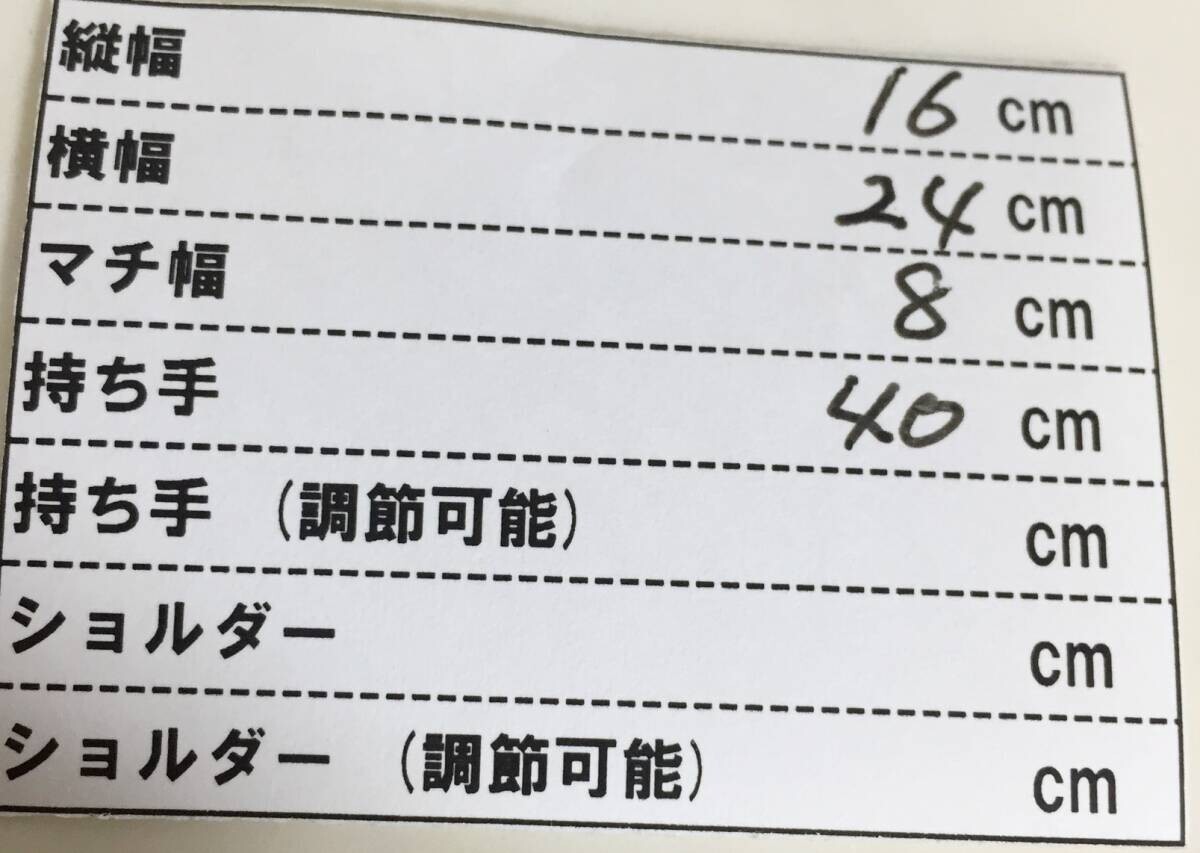 縦幅 16 cm
横幅 24 cm
マチ幅 8 cm
持ち手 40 cm
持ち手 (調節可能) cm
ショルダー cm
ショルダー (調節可能) cm